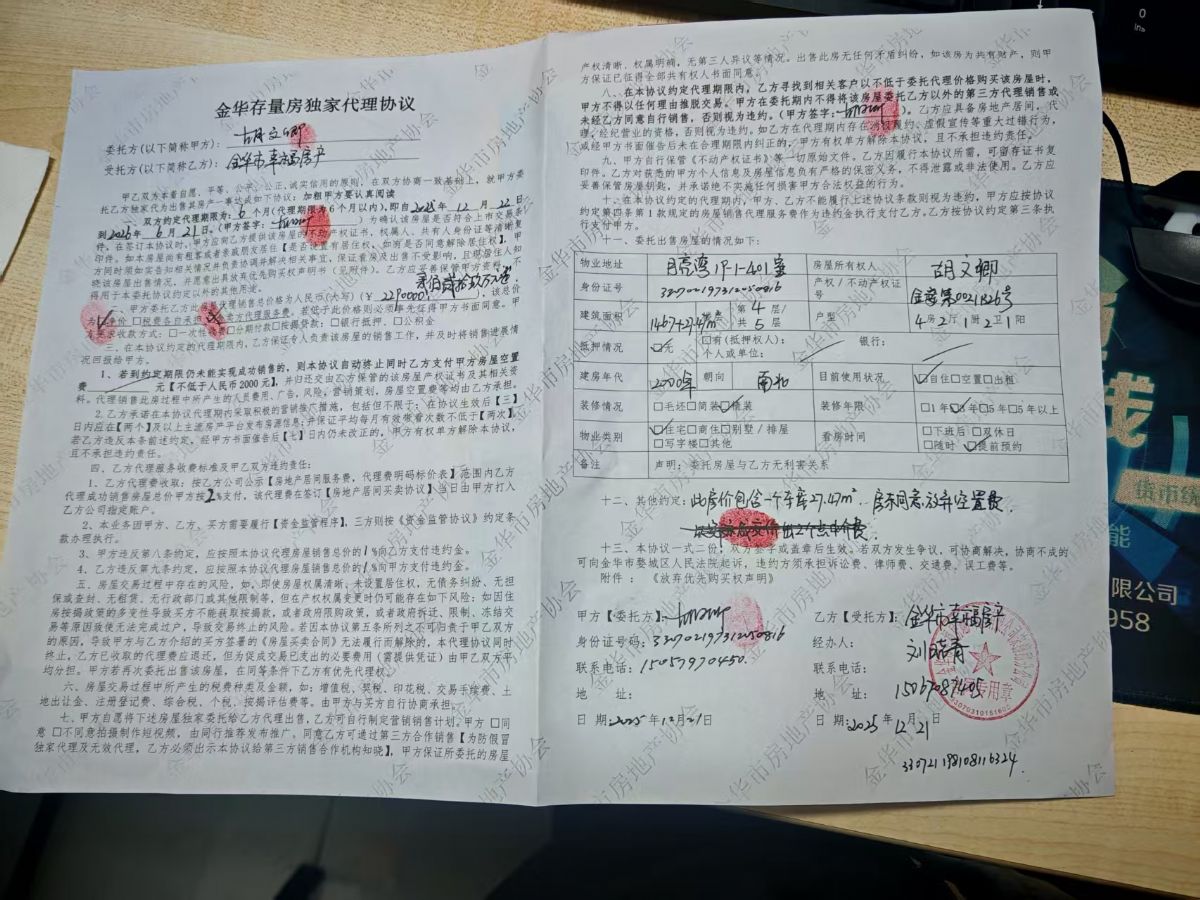 金华存量房独家代理协议
委托方(以下简称甲方): 胡文卿
受托方(以下简称乙方): 金华市幸福房产
甲乙双方本着自愿、平等、公平、公正、诚实信用的原则,在双方协商一致基础上,就甲方委
托乙方独家代为出售其房产一事达成如下协议:加粗甲方要认真阅读
一、双方约定代理期限为: 6 个月(代理期限为6个月以内),即自2025年12月22日
到2026年6月21日。(甲方签字:
)为确认该房屋是否符合上市交易条
件。在签订本协议时,甲方应向乙方提供该房屋的不动产权证书、权属人、共有人身份证等清晰复
印件。如本房屋尚有租客或者亲戚朋友居住【是否设置有居住权,如有是否同意解除居住权】,甲
方同时须如实告知相关情况并负责协调并解决相关事宜,保证看房及出售不受影响,且现居住人知
晓该房屋出售情况,并愿意出具放弃优先购买权声明书(见附件)。乙方应妥善保管甲方资料,不
得用于本委托协议约定以外的其他用途。
二、甲方委托乙方 房屋代理销售总价格为人民币(大写)(¥ 2290000
),该总价
为 净价 □税费各自承担 卖方代理服务费。若低于此价格则必须事先征得甲方书面同意。甲
方要求收款方式:□一次性 □分期付款□按揭贷款:□银行抵押、□公积金
三、在本协议约定的代理期限内,乙方保证专人负责该房屋的销售工作,并及时将销售进展情
况回报给甲方。
1、若到约定期限仍未能实现成功销售的,则本协议自动终止同时乙方支付甲方房屋空置
费 元【不低于人民币2000元】,并归还交由乙方保管的该房屋产权证书及其相关资
料。代理销售此房过程中所产生的人员费用、广告、风险、营销策划、房屋空置费等均由乙方承担。
2、乙方承诺在本协议代理期内采取积极的营销推广措施,包括但不限于:在协议生效后【三】
日内应在【两个】及以上主流房产平台发布房源信息;并保证平均每月有效带看次数不低于【两次】。
若乙方违反本条前述约定,经甲方书面催告后【七】日内仍未改正的,甲方有权单方解除本协议,
且不承担违约责任。
四、乙方代理服务收费标准及甲乙双方违约责任:
1、乙方代理费收取:按乙方公司公示【房地产居间服务费,代理费明码标价表】范围内乙方
代理成功销售房屋总价甲方按2%支付,该代理费在签订【房地产居间买卖协议】当日由甲方打入
乙方公司指定账户。
2、本业务因甲方、乙方、买方需要履行【资金监管程序】,三方则按《资金监管协议》约定条
款办理执行。
3、甲方违反第八条约定,应按照本协议代理房屋销售总价的1%向乙方支付违约金。
4、乙方违反第九条约定,应按照本协议代理房屋销售总价的1%向甲方支付违约金。
五、房屋交易过程中存在的风险,如、即使房屋权属清晰、未设置居住权,无债务纠纷、无担
保或查封、无租赁、无行政部门或其他限制等,但在产权权属变更时仍可能存在如下风险;如因住
房按揭政策的多变性导致买方不能获取按揭款,或者政府限购政策,或者政府拆迁、限制、冻结交
易等原因致使无法完成过户,导致交易终止的风险。若因本协议第五条所列之不可归责于甲乙双方
的原因,导致甲方与乙方介绍的买方签署的《房屋买卖合同》无法履行而解除的,本代理协议同时
终止,乙方已收取的代理费应退还,但为促成交易已支出的必要费用(需提供凭证)由甲乙双方平
均分担。甲方若再次委托出售该房屋,在同等条件下乙方有优先代理权。
六、房屋交易过程中所产生的税费种类及金额,如:增值税、契税、印花税、交易手续费、土
地出让金、注册登记费、综合税、个税、按揭评估费等。由甲方与买方自行协商承担。
七、甲方自愿将下述房屋独家委托给乙方代理出售,乙方可自行制定营销销售计划,甲方□同
意 □不同意拍摄制作短视频,由同行推荐发布推广,同意乙方可通过第三方合作销售【为防假冒
独家代理及无效代理,乙方必须出示本协议给第三方销售合作机构知晓】,甲方保证所委托的房屋
产权清晰、权属明确,无第三人异议等情况。出售此房无任何矛盾纠纷,如该房为共有财产,则甲
方保证已征得全部共有权人书面同意。
八、在本协议约定代理期限内,乙方寻找到相关客户以不低于委托代理价格购买该房屋时,
甲方不得以任何理由推脱交易。甲方在委托期内不得将该房屋委托乙方以外的第三方代理销售或
未经乙方同意自行销售,否则视为违约。(甲方签字: )乙方应具备房地产居间、代
理、经纪营业的资格,否则视为违约。如乙方在代理期内存在消极履约、虚假宣传等重大过错行为,
或经甲方书面催告后未在合理期限内纠正的,甲方有权单方解除本协议,且不承担违约责任。
九、甲方自行保管《不动产权证书》等一切原始文件。乙方因履行本协议所需,可留存证书复
印件。乙方对获悉的甲方个人信息及房屋信息负有严格的保密义务,不得泄露或非法使用。乙方应
妥善保管房屋钥匙,并承诺绝不实施任何损害甲方合法权益的行为。
十、在本协议约定的代理期内,甲方、乙方不能履行上述协议条款则视为违约。甲方应按协议
约定第四条第1款规定的房屋销售代理服务作为违约金执行支付乙方。乙方按协议约定第三条执
行支付甲方。
十一、委托出售房屋的情况如下:
物业地址 月亮湾1P-1-401室 房屋所有权人 胡文卿
身份证号 330702197312050816 产权/不动产权证号
建筑面积 第4层/共5层 户型 4房2厅1厨2卫1阳
抵押情况 ☑无 □有(抵押权人): 银行:
个人或单位:
建房年代 2000年 朝向 南北 目前使用状况 ☑自住□空置□出租
装修情况 □毛坯□简装☑精装 装修年限 □1年☑3年□5年□5年以上
物业类别 ☑住宅□商住□别墅/排屋 看房时间 □下班后 □双休日
□写字楼□其他 □随时 ☑提前预约
备注 声明:委托房屋与乙方无利害关系
十二、其他约定:此房价包含一个车库27.47m².房东同意放弃空置费.
十三、本协议一式二份,双方签字或盖章后生效。若双方发生争议,可协商解决,协商不成的
可向金华市婺城区人民法院起诉,违约方须承担诉讼费、律师费、交通费、误工费等。
附件:《放弃优先购买权声明》
甲方【委托方】:
身份证号码:330702197312050816
联系电话:15057970450.
地 址:
日 期:2025年12月21日
乙方【受托方】:金华市幸福房产
经办人:
联系电话:
地 址:15067087405
日 期:2025年12月21日
330721198108116324.
货币统
限公司
958